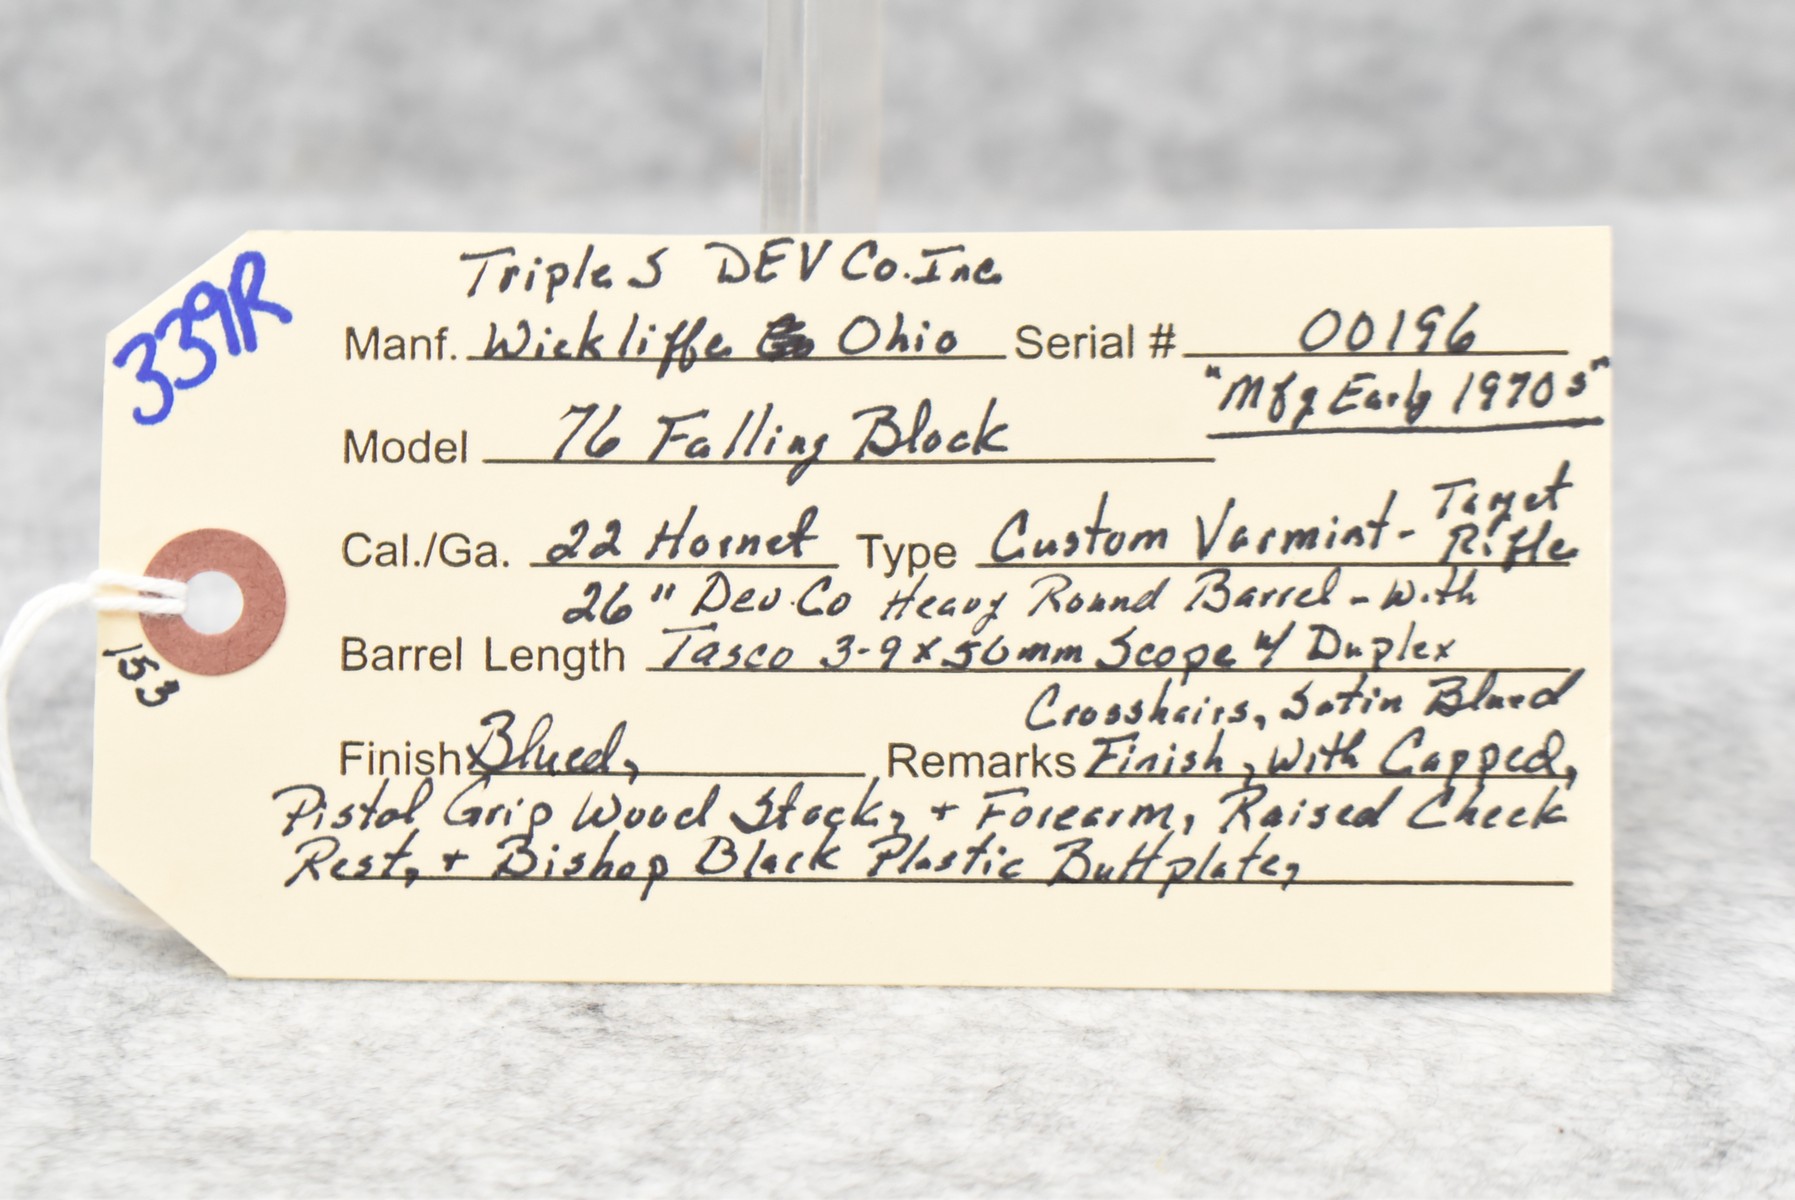 339R
153
Triple S DEV Co. Inc.
Manf. Wickliffe Ohio Serial # 00196
"Mfg Early 1970s"
Model 76 Falling Block
Cal./Ga. 22 Hornet Type Custom Varmint - Target Rifle
26" Dev. Co Heavy Round Barrel - With
Barrel Length Tasco 3-9x50mm Scope w/ Duplex
Crosshairs, Satin Blued
Finish Blued, Remarks Finish, With Capped,
Pistol Grip Wood Stock, + Forearm, Raised Cheek
Rest, + Bishop Black Plastic Buttplate,